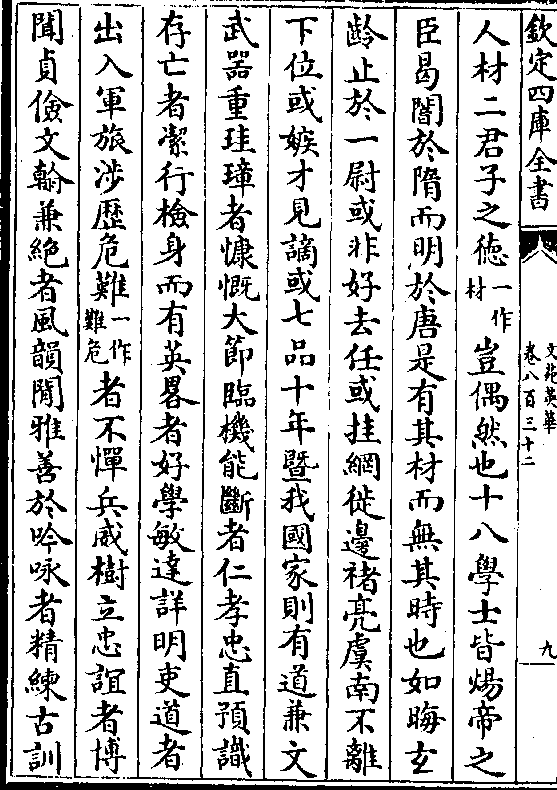 欽定四庫全書
文苑英華
卷八百三十二
九
人材二君子之徳一作材豈偶然也十八學士皆煬帝之
臣曷闇於隋而明於唐是有其材而無其時也如晦𤣥
齡止於一尉或非好去任或挂網徙邊禇亮虞南不離
下位或嫉才見謫或七品十年暨我國家則有道兼文
武器重珪璋者慷慨大節臨機能斷者仁孝忠直預識
存亡者潔行檢身而有英畧者好學敏達詳明吏道者
出入軍旅涉歷危難一作難危者不憚兵威樹立忠誼者博
聞貞儉文翰兼絶者風韻閒雅善於吟咏者精練古訓